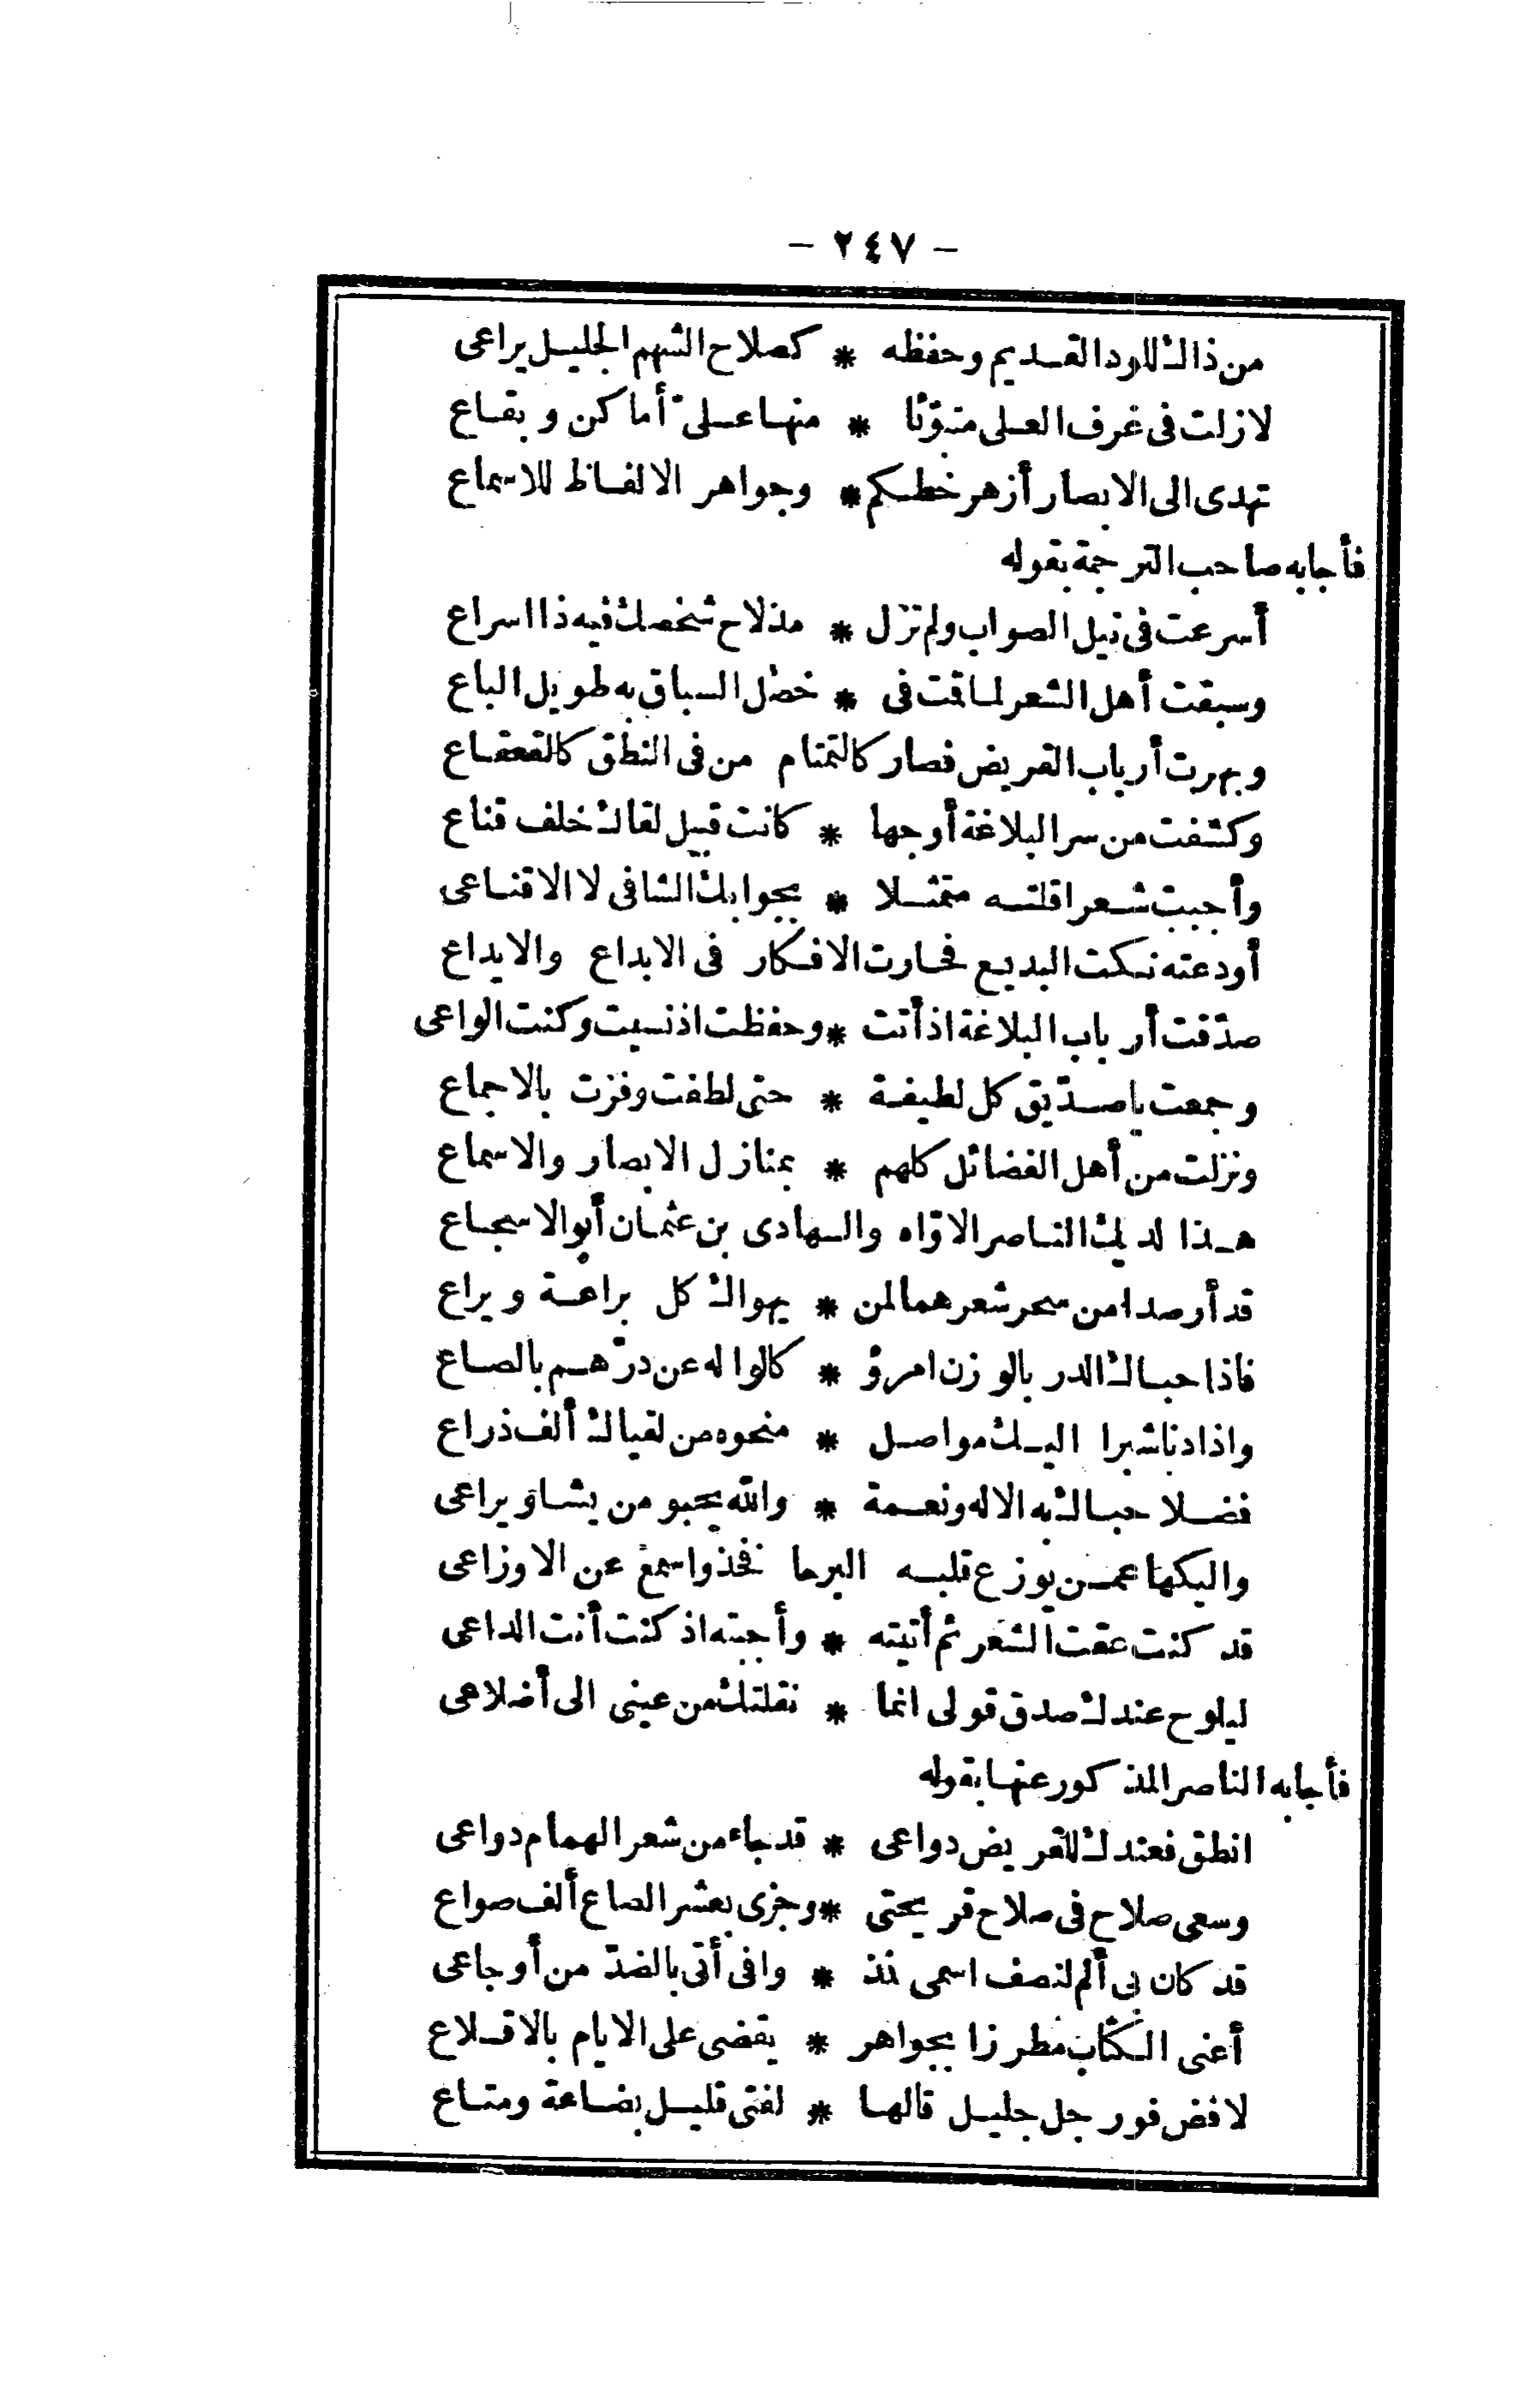 - ٢٤٧ -
من ذاك للود القديم وحفظه * كصلاح الشهم الجليل يراعى
لا زلت فى غرف العلى متبوّئا * منها على أماكن وبقاع
تهدى الى الابصار أزهر خطكم * وجواهر الالفاظ للاسماع
فأجابه صاحب الترجمة بقوله
أسرعت فى نيل الصواب ولم تزل * مذلاح شخصك فيه ذا اسراع
وسبقت أهل الشعر لما قمت فى * خصل السباق به طويل الباع
وبهرت أرباب القريض فصار كالتمتام من فى النطق كالقعقاع
وكشفت من سر البلاغة أوجها * كانت قبيل لقاك خلف قناع
وأجبت شعرا قلته متمثلا * بجوابك الشافى لا الاقناعى
أودعته نكت البديع فحارت الافكار فى الابداع والايداع
صدّقت أرباب البلاغة اذ أتت * وحفظت اذ نسيت وكنت الواعى
وجمعت يا صدّيق كل لطيفة * حتى لطفت وفزت بالاجماع
ونزلت من أهل الفضائل كلهم * بمنازل الابصار والاسماع
هذا لديك الناصر الاوّاه والهادى بن عثمان أبو الاسجاع
قد أرصدا من سحر شعرهما لمن * يهواك كل براعة ويراع
فاذا حباك الدر بالوزن امرؤ * كالوا له عن درّهم بالصاع
واذا دنا شبرا اليك مواصل * منحوه من لقياك ألف ذراع
فضلا حباك به الاله ونعمة * والله يحبو من يشا ويراعى
واليكها عمن يوزع قلبه البرحا فخذ واسمع عن الاوزاعى
قد كنت عقت الشعر ثم أتيته * وأجبته اذ كنت أنت الداعى
ليلوح عندك صدق قولى انما * نقلتك من عينى الى أضلاعى
فأجابه الناصر المذكور عنها بقوله
انطق فعندك للقريض دواعى * قد جاء من شعر الهمام دواعى
وسعى صلاح فى صلاح قريحتى * وجزى بعشر الصاع ألف صواع
قد كان بى ألم لنصف اسمى فذ * وافى أتى بالضدّ من أوجاعى
أعنى الكتاب مطرزا بجواهر * يقضى على الايام بالاقلاع
لافض فور جل جليل قالها * لفتى قليل بضاعة ومتاع